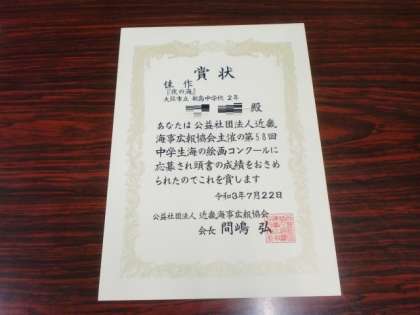 賞状
佳作
『夜の海』
大阪市立 新高中学校 2年
殿
あなたは公益社団法人近畿
海事広報協会主催の第58回
中学生海の絵画コンクールに
応募され頭書の成績をおさめ
られたのでこれを賞します
令和3年7月22日
公益社団法人 近畿海事広報協会
会長 間嶋 弘